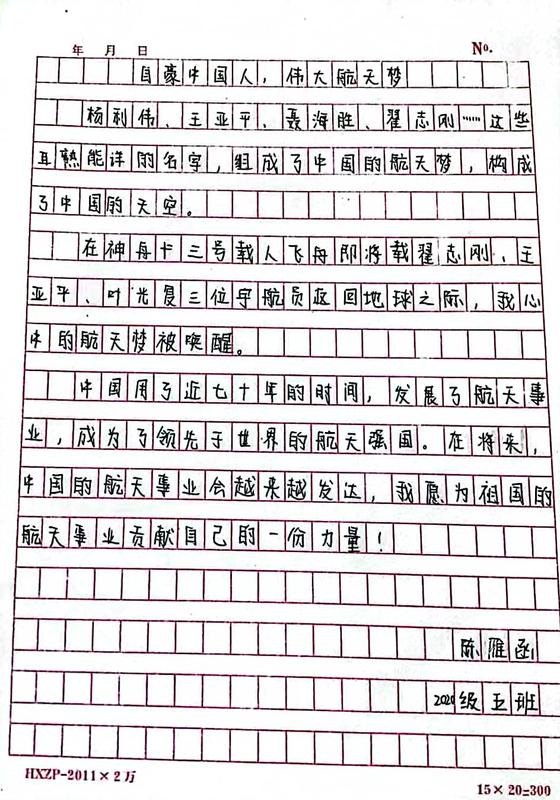 年 月 日 No.
自豪中国人,伟大航天梦
杨利伟、王亚平、聂海胜、翟志刚……这些
耳熟能详的名字,组成了中国的航天梦,构成
了中国的天空。
在神舟十三号载人飞舟即将载翟志刚、王
亚平、叶光复三位宇航员返回地球之际,我心
中的航天梦被唤醒。
中国用了近七十年的时间,发展了航天事
业,成为了领先于世界的航天强国。在将来,
中国的航天事业会越来越发达,我愿为祖国的
航天事业贡献自己的一份力量!
陈雁函
2020级五班
HXZP-2011×2万 15×20=300